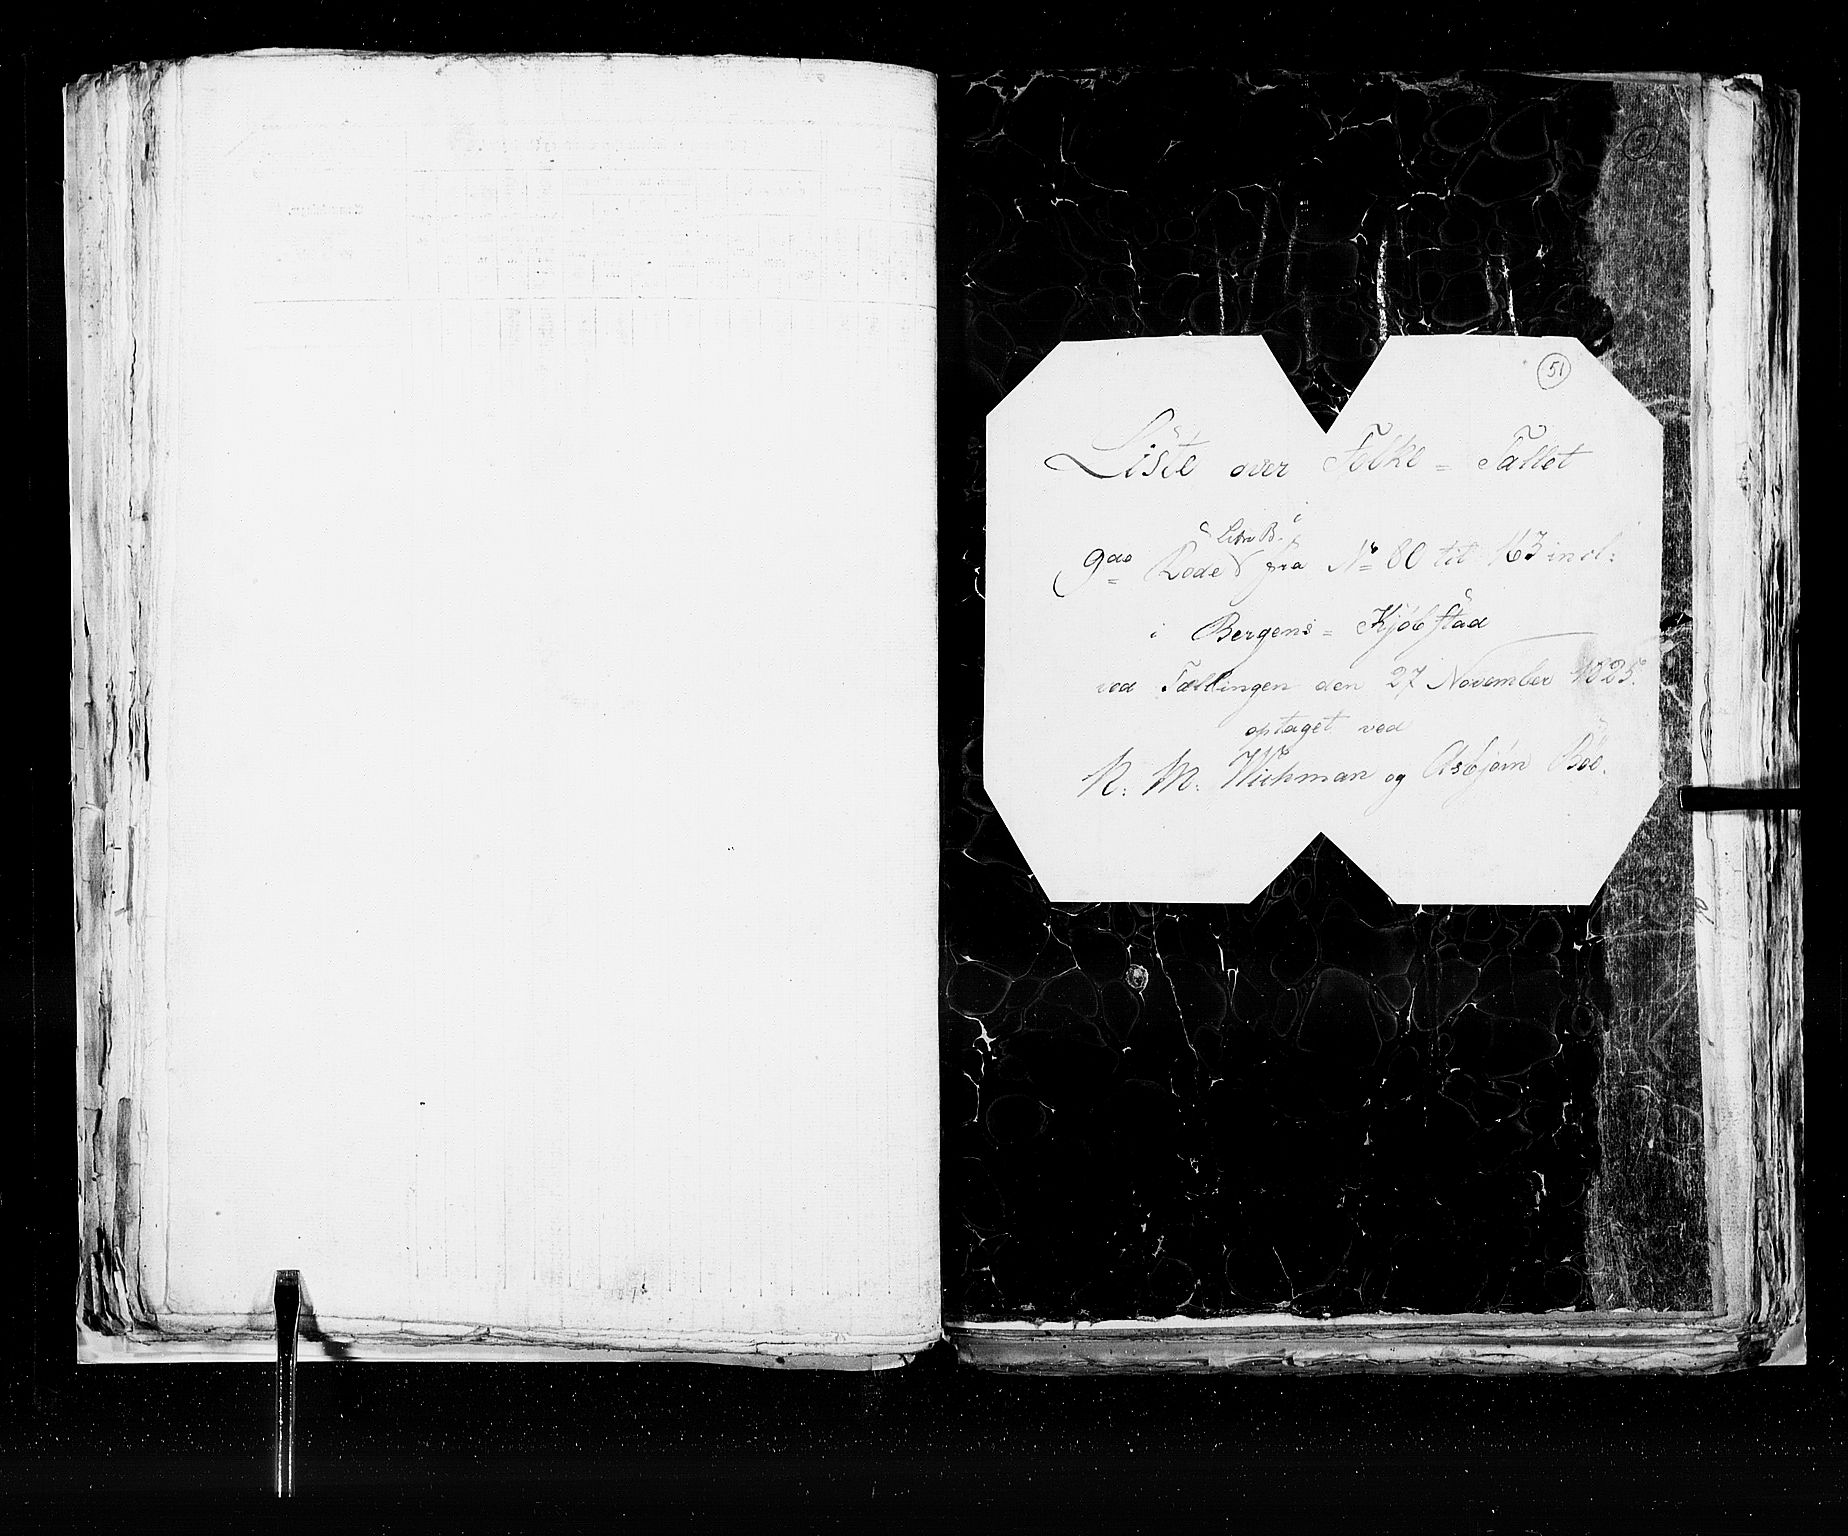 51
Liste over Folke = Tallet
Litr B.
9de Rode fra No 80 til 163 incl:
i Bergens = Kjøbstad
ved Tællingen den 27 November 1825.
optaget ved
N. M. Wichman og Asbjørn Böe.